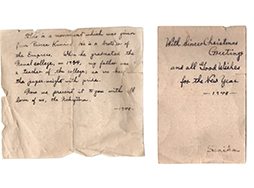 This is a monument which was given
from Prince Kuni. He is a brother of
the Empress. When he graduated the
Naval college in 1924, my father was
a teacher of the college, so we kept
the paper-weight with pride.
Now we present it to you with all
love of us, the
—1948—
With Sincere Christmas
Greeting
and all Good Wishes
for the New Year
—1948—